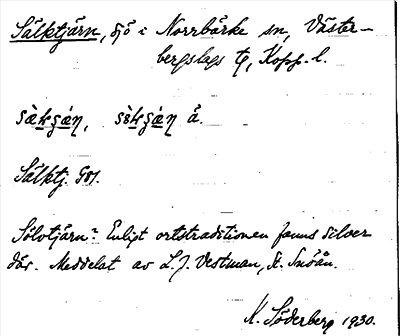 Sälktjärn, sjö i Norrbärke sn, Väster-
bergslags tg, Kopp. l.
Sälktj. GSK.
Silvtjärn? Enligt ortstraditionen fanns silver
där. Meddelat av L. J. Vestman, St. Snöån.
K. Söderberg 1930.